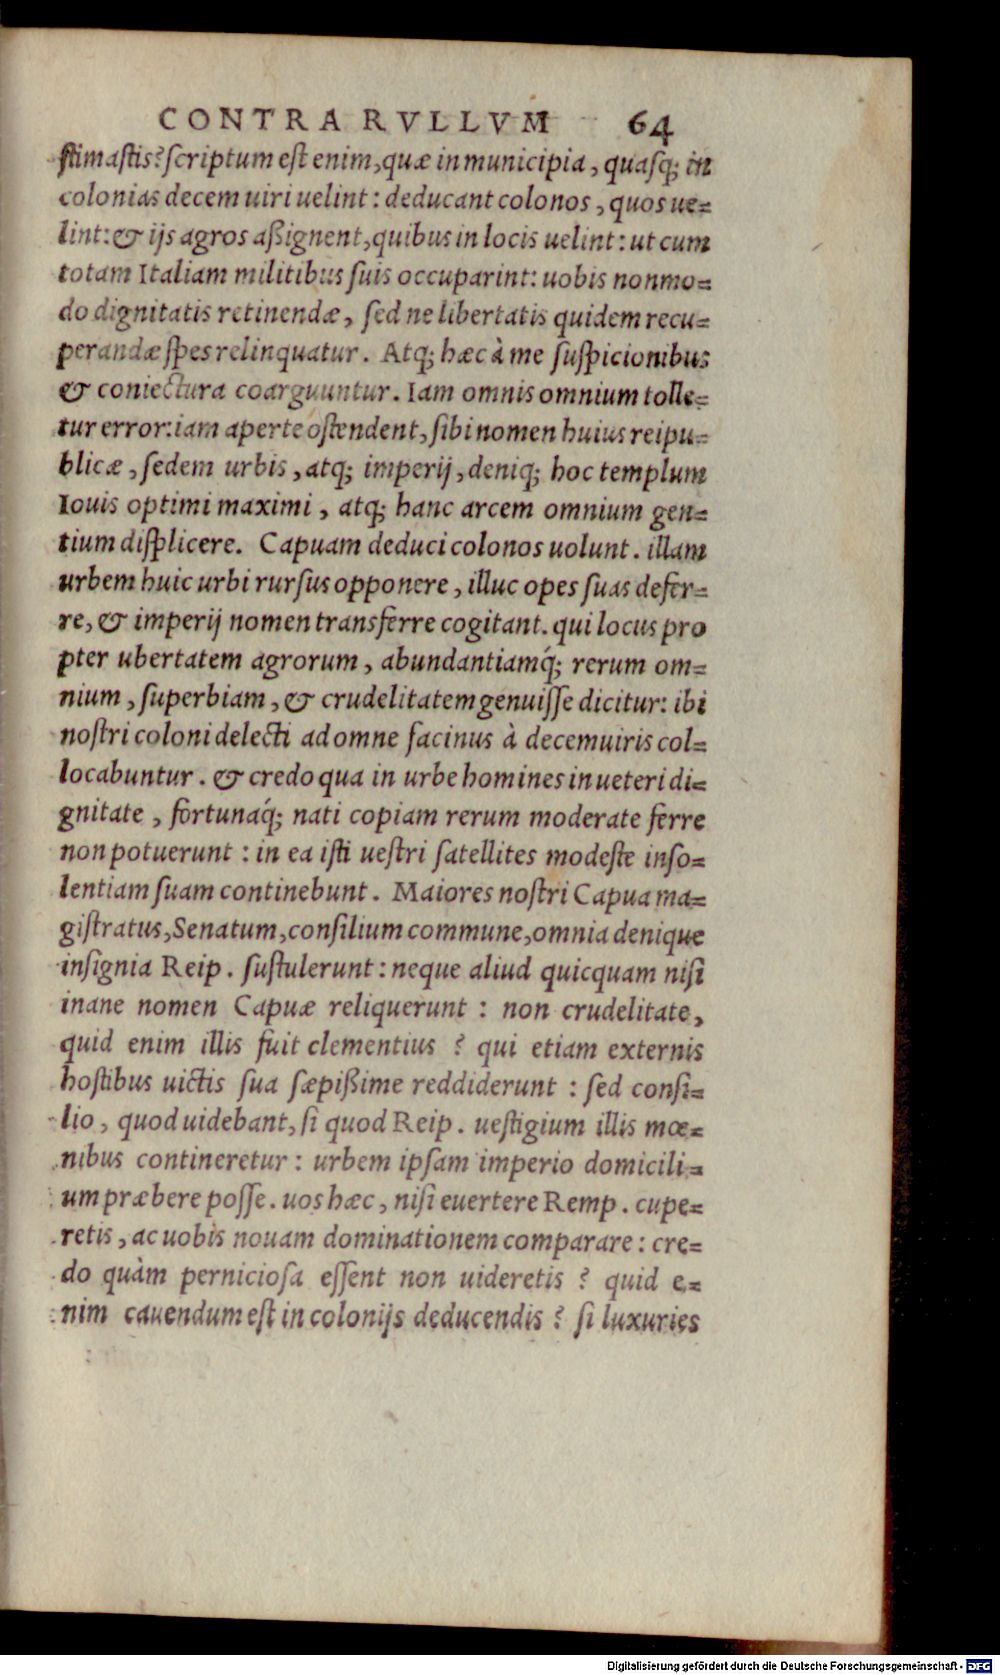 CONTRA RVLLVM 64
stimastis? scriptum est enim, quæ in municipia, quasq; in
colonias decem uiri uelint: deducant colonos, quos ue=
lint: & ijs agros aßignent, quibus in locis uelint: ut cum
totam Italiam militibus suis occuparint: uobis non mo=
do dignitatis retinendæ, sed ne libertatis quidem recu=
perandæ spes relinquatur. Atq; hæc à me suspicionibus
& coniectura coarguuntur. Iam omnis omnium tolle=
tur error: iam aperte ostendent, sibi nomen huius reipu=
blicæ, sedem urbis, atq; imperij, deniq; hoc templum
Iouis optimi maximi, atq; hanc arcem omnium gen=
tium displicere. Capuam deduci colonos uolunt. illam
urbem huic urbi rursus opponere, illuc opes suas defer=
re, & imperij nomen transferre cogitant. qui locus pro
pter ubertatem agrorum, abundantiamq́; rerum om=
nium, superbiam, & crudelitatem genuisse dicitur: ibi
nostri coloni delecti ad omne facinus à decemuiris col=
locabuntur. & credo qua in urbe homines in ueteri di=
gnitate, fortunaq́; nati copiam rerum moderate ferre
non potuerunt: in ea isti uestri satellites modeste inso=
lentiam suam continebunt. Maiores nostri Capua ma=
gistratus, Senatum, consilium commune, omnia denique
insignia Reip. sustulerunt: neque aliud quicquam nisi
inane nomen Capuæ reliquerunt: non crudelitate,
quid enim illis fuit clementius? qui etiam externis
hostibus uictis sua sæpißime reddiderunt: sed consi=
lio, quod uidebant, si quod Reip. uestigium illis mœ=
nibus contineretur: urbem ipsam imperio domicili=
um præbere posse. uos hæc, nisi euertere Remp. cupe=
retis, ac uobis nouam dominationem comparare: cre=
do quàm perniciosa essent non uideretis? quid e=
nim cauendum est in colonijs deducendis? si luxuries
Digitalisierung gefördert durch die Deutsche Forschungsgemeinschaft - DFG